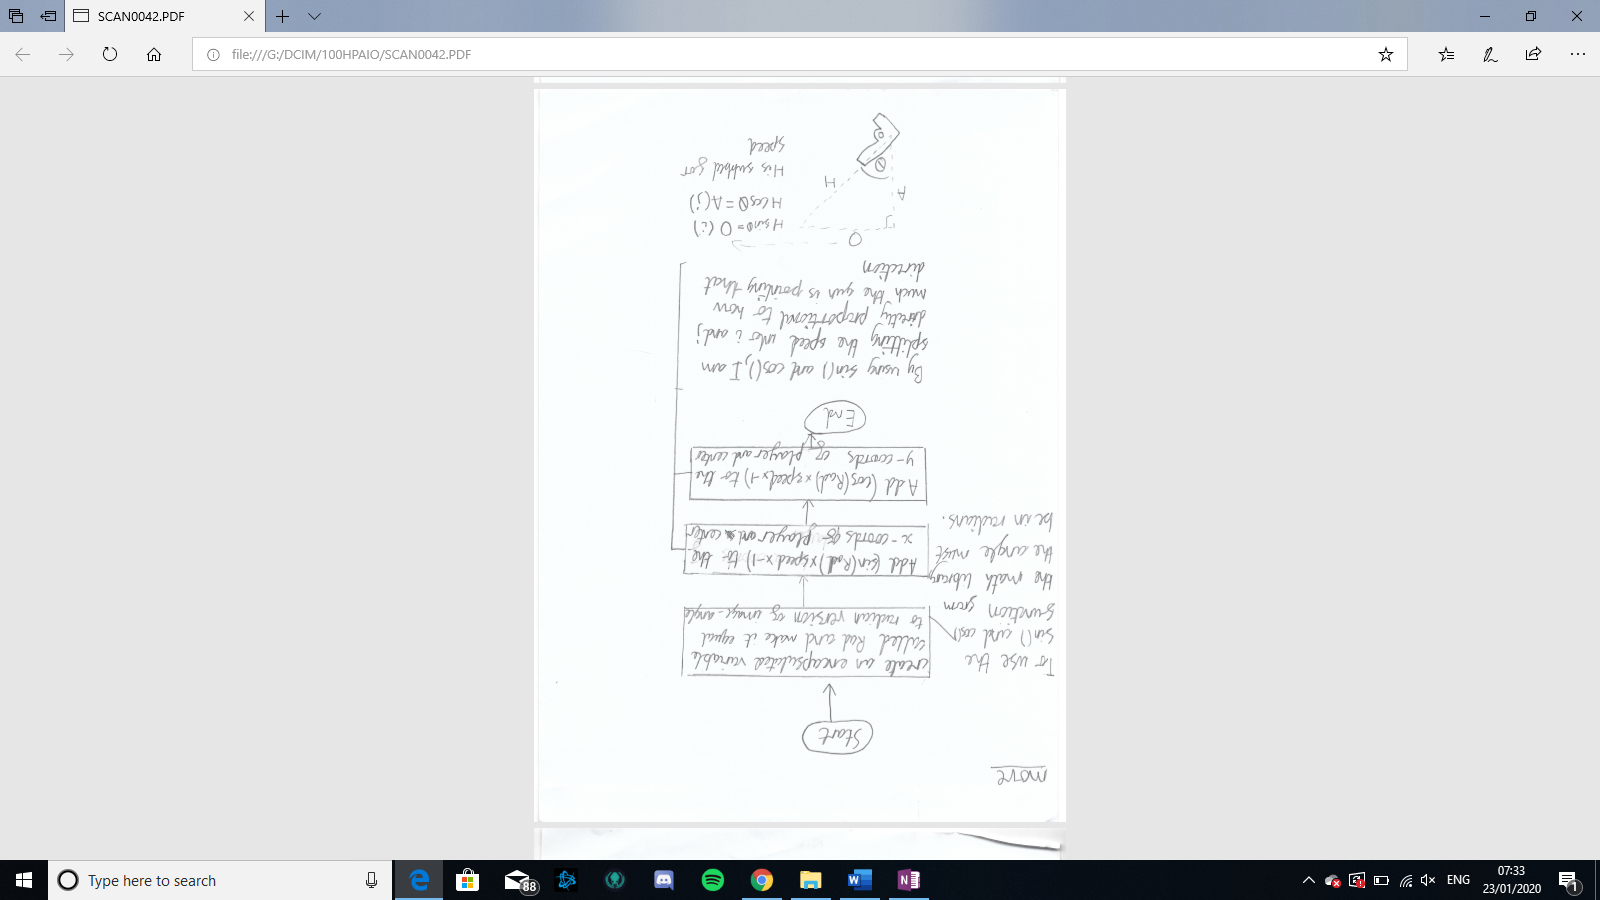 SCAN0042.PDF
file:///G:/DCIM/100HPAIO/SCAN0042.PDF
move
Start
create an encapsulated variable
called Rad and make it equal
to radian version of image-angle
To use the
sin() and cos()
function from
the math library
the angle must
be in radians.
Add (sin(Rad)×speed×-1) to the
x-coords of player and center
Add (cos(Rad)×speed×-1) to the
y-coords of player and center
End
By using sin() and cos(), I am
splitting the speed into i and j
directly proportional to how
much the gun is pointing that
direction
O
H
A
θ
H sinθ = O (i)
H cosθ = A (j)
H is subbed for
speed
Type here to search
88
ENG
07:33
23/01/2020
1